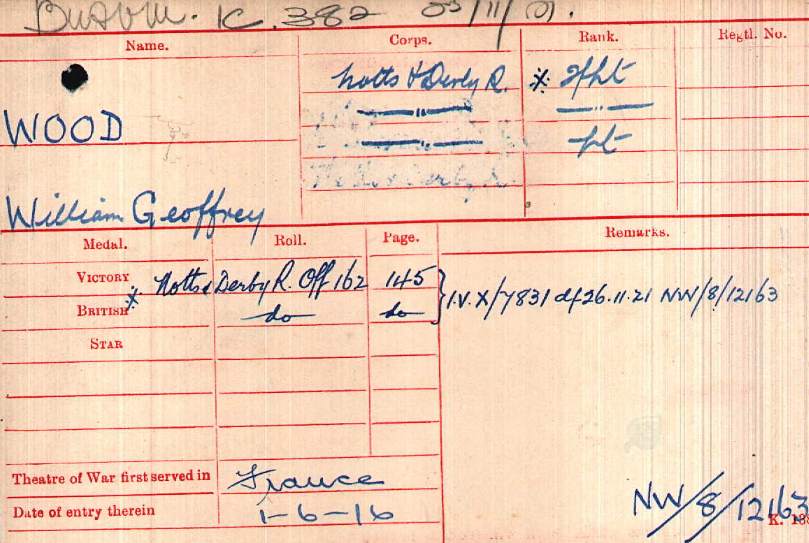 K. 382
Name. Corps. Rank. Regtl. No.
Notts & Derby R. * 2/Lt
WOOD —"— —"—
—"— Lt
William Geoffrey
Medal. Roll. Page. Remarks.
VICTORY * Notts & Derby R. Off 162 145 } I.V.X/7831 d/26.11.21 NW/8/12163
BRITISH do do
STAR
Theatre of War first served in France
Date of entry therein 1-6-16
NW/8/12163